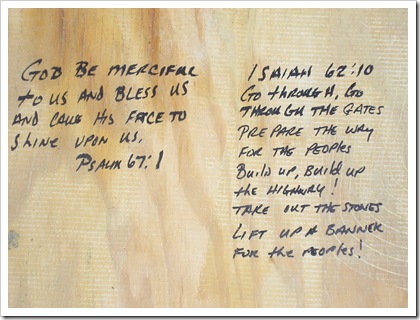 GOD BE MERCIFUL
to US AND BLESS US
AND CAUSE HIS FACE TO
SHINE UPON US.
PSALM 67:1
ISAIAH 62:10
GO THROUGH, GO
THROUGH THE GATES
PREPARE THE WAY
FOR THE PEOPLES
BUILD UP, BUILD UP
the HIGHWAY!
TAKE OUT THE STONES
LIFT UP A BANNER
FOR the PEOPLES!